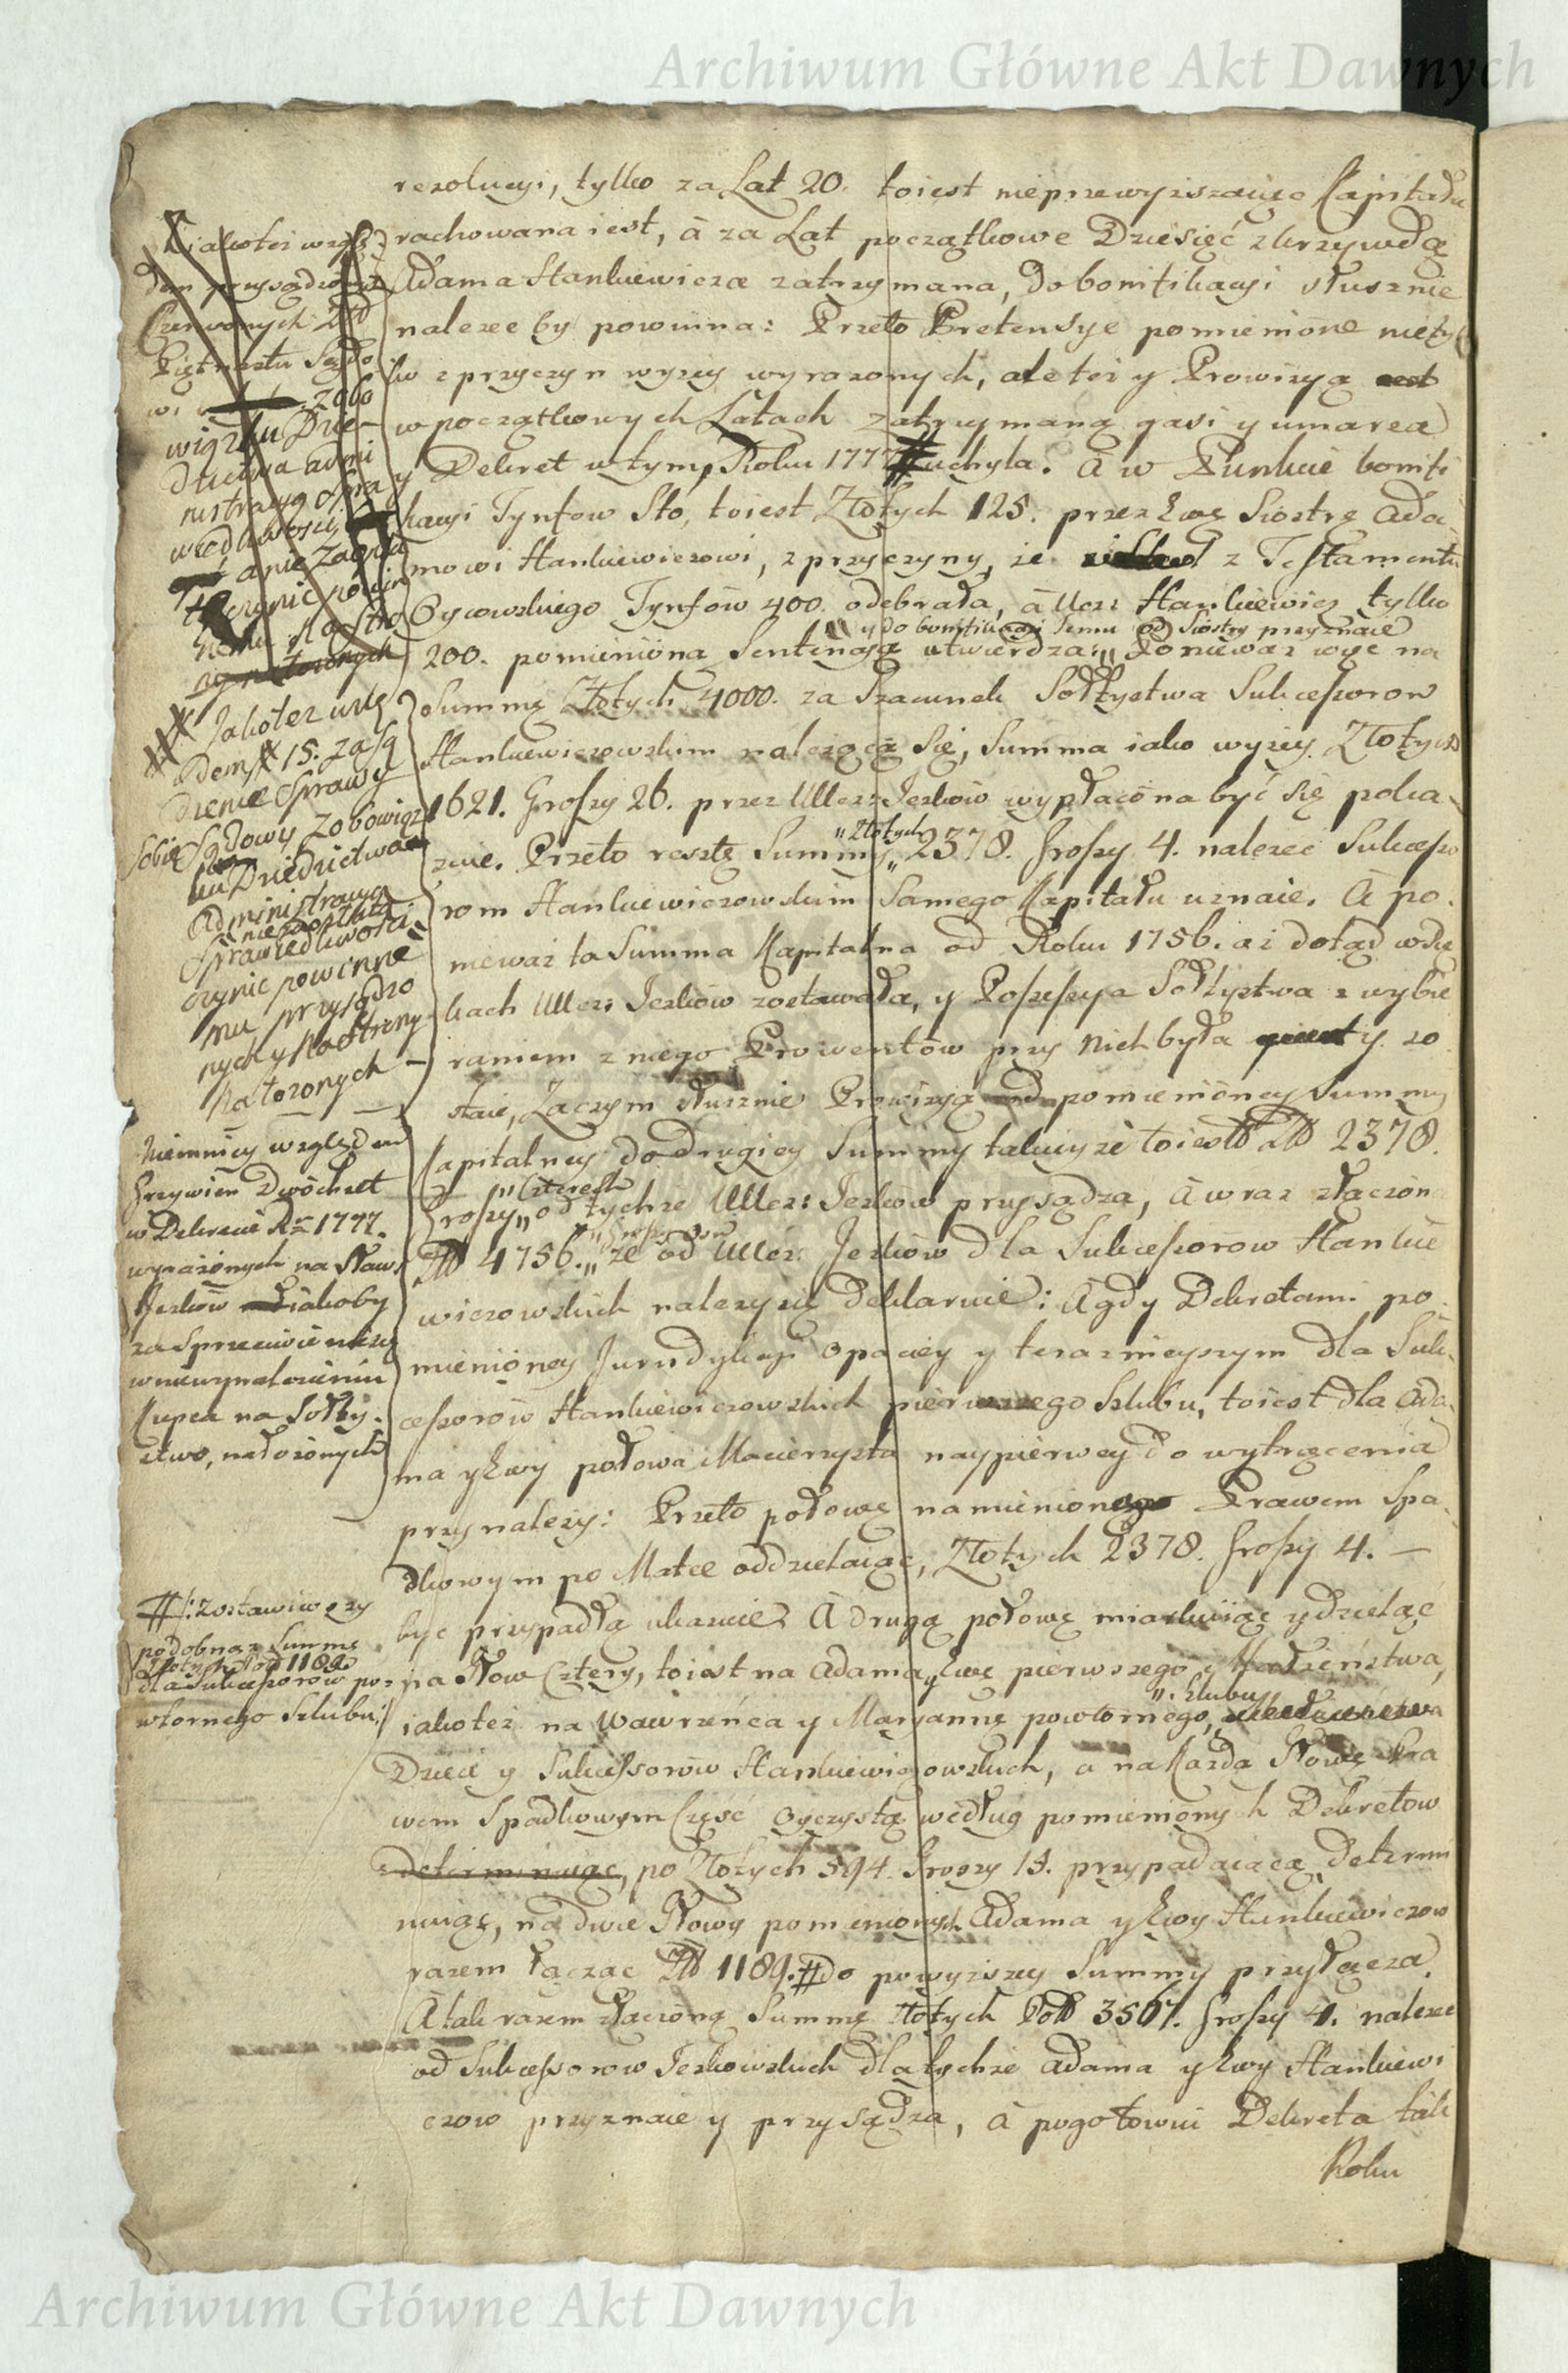 Archiwum Główne Akt Dawnych
rezolucyi, tylko za Lat 20. toiest nieprzewyższaiąc Kapitału
rachowana iest, à za Lat początkowe Dziesięć z krzywdą
Adama Stankiewicza zatrzymana, do bonifikacyi słusznie
należeć by powinna: Przeto Pretensye pomienione nietyl
ko z przyczyn wyżey wyrażonych, ale też y Prowizyą
w początkowych Latach zatrzymaną gasi y umarza
y Dekret w tym, Roku 1777 # uchyla. à w Punkcie bonifi
kacyi Tynfow Sto, toiest Złotych 125. przez Ewę Siostrę Ada
mowi Stankiewiczowi, z przyczyny, że z Testamentu
Oycowskiego Tynfów 400. odebrała, à Ucz: Stankiewicz tylko
y do bonifikacyi Jemu od Siostry przyznaie
200. pomieniona Sentencyą utwierdza: Ponieważ więc na
Summę Złotych 4000. za Szacunek Sołtystwa Sukcessorow
Stankiewiczowskim należącą Się, Summa iako wyżey Złotych
1621. Groszy 26. przez Ucz: Jeskow wypłacona być się poka
Złotych
zuie. Przeto resztę Summy 2378. Groszy 4. należeć Sukcesso
rom Stankiewiczowskim Samego Kapitału uznaie. à po
nieważ ta Summa Kapitalna od Roku 1756. aż dotąd w Rę
kach Ucz: Jeskow zostawała, y Possessya Sołtystwa z wybie
raniem z niego Prowentów przy Nich była y zo
staie, Zaczym słusznie Prowizyą od pomienioney Summy
Kapitalney do drugiey Summy takieyże toiest Złł 2378.
Czterech
Groszy od tychże Ucz: Jeskow przysądza, à wraz złączon
Groszy Osm
Złł 4756. że od Ucz: Jeskow dla Sukcessorow Stankie
wiczowskich należy się deklaruie: à gdy Dekretami po
mienioney Jurydykcyi Opaciey y terazniejszym dla Suk
cessorow Stankiewiczowskich pierwszego Szlubu, toiest dla Ada
ma y Ewy połowa Macierzysta naypierwey do wytrącenia
przynależy: Przeto połowę namienion Prawem Spa
dkowym po Matce oddzielaiąc, Złotych 2378. Groszy 4. —
być przypadłą ukazuie. à drugą połowę miarkuiąc y dzieląc
na Głow Cztery, toiest na Adama y Ewę pierwszego Małżeństwa,
Szlubu
iakoteż na Wawrzeńca y Maryannę powtornego,
Dzieci y Sukcessorow Stankiewiczowskich, a na Każdą Głowę Pra
wem Spadkowym Część Oyczystą według pomienionych Dekretow
determinuiąc, po Złotych 594. Groszy 15. przypadaiącą determi
nuiąc, na dwie Głowy pomienionych Adama y Ewy Stankiewiczow
razem łącząc Złł 1189. # do powyższey Summy przyłącza.
à tak razem złączoną Summę Złotych Poll 3567. Groszy 4. należeć
od Sukcessorow Jeskowskich dla tychże Adama y Ewy Stankiewi
czow przyznaie y przysądza, à pogotowiu Dekreta tak
Roku
iakoteż wzglę
dem przysądzonych
Czerwonych Złł
Piętnastu Sądo
wi zobo
wiązku Dzie
dzictwa admi
nistracyą Spra
wiedliwości
a nie Zapła
czynić powin
nemu
Jakoteż wzglę
dem # 15. za Są
dzenie Sprawy
Sobie Sądowy z obowiąz
ku Dziedzictwa
Administracyą
Sprawiedliwości
czynić powinne
mu przysądzo
nych y na Strony
Nałożonych —
Niemniey względem
Grzywien Dwóchset
w Dekrecie R= 1777.
wyrażonych na Sław:
Jeskow iakoby
za Sprzeciwienie się
w niewynalezieniu
Kupca na Sołty
stwo, nałożonych
# /: zostawiwszy
podobnąż Summę
Złotych Poll 1189.
dla Sukcessorow po=
wtornego Szlubu :/
Archiwum Główne Akt Dawnych